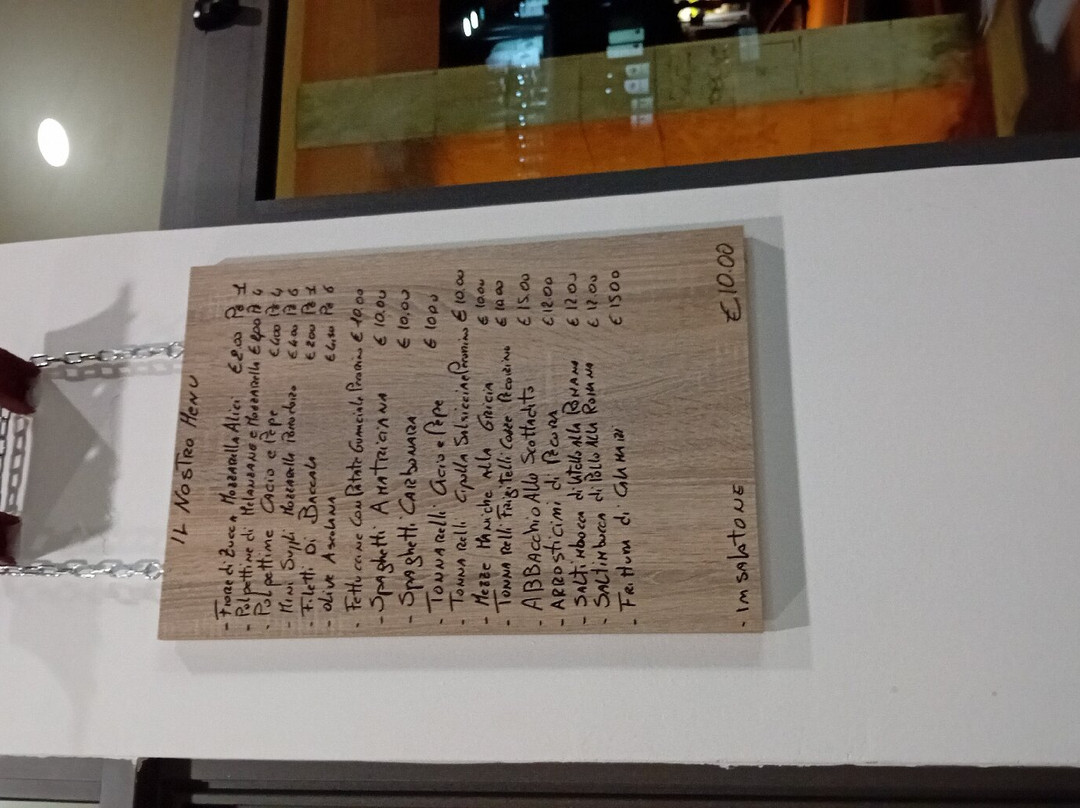 IL NOSTRO MENU
- Fiore di Zucca, Mozzarella Alici €2.00 Pz 1
- Polpettine di Melanzane e Mozzarella €4,00 Pz 4
- Polpettime Cacio e Pepe €4,00 Pz 4
- Mini Supplì Mozzarella Pomodoro €4.00 Pz 6
- Filetti Di Baccalà €2.00 Pz 1
- Olive Ascolane €4,50 Pz 6
- Fettuccine Con Patate Guanciale Pecorino €10,00
- Spaghetti AMATRICIANA €10,00
- Spaghetti CARBONARA €10,00
- TONNARELLI Cacio e Pepe €10,00
- TONNARELLI Cipolla Salsiccia e Pecorino €10.00
- Mezze Maniche Alla Gricia €10,00
- TONNARELLI Friggitelli Cozze Pecorino €10,00
- ABBAcchio Allo Scottadito €15.00
- ARROSTICIMI di Pecora €12.00
- SALTIMBOCCA di Vitello Alla ROMANA €12.00
- SALTIMBOCCA di Pollo Alla ROMANA €12.00
- FRITTURA di CALAMARI €15.00
- IMSALATONE €10.00